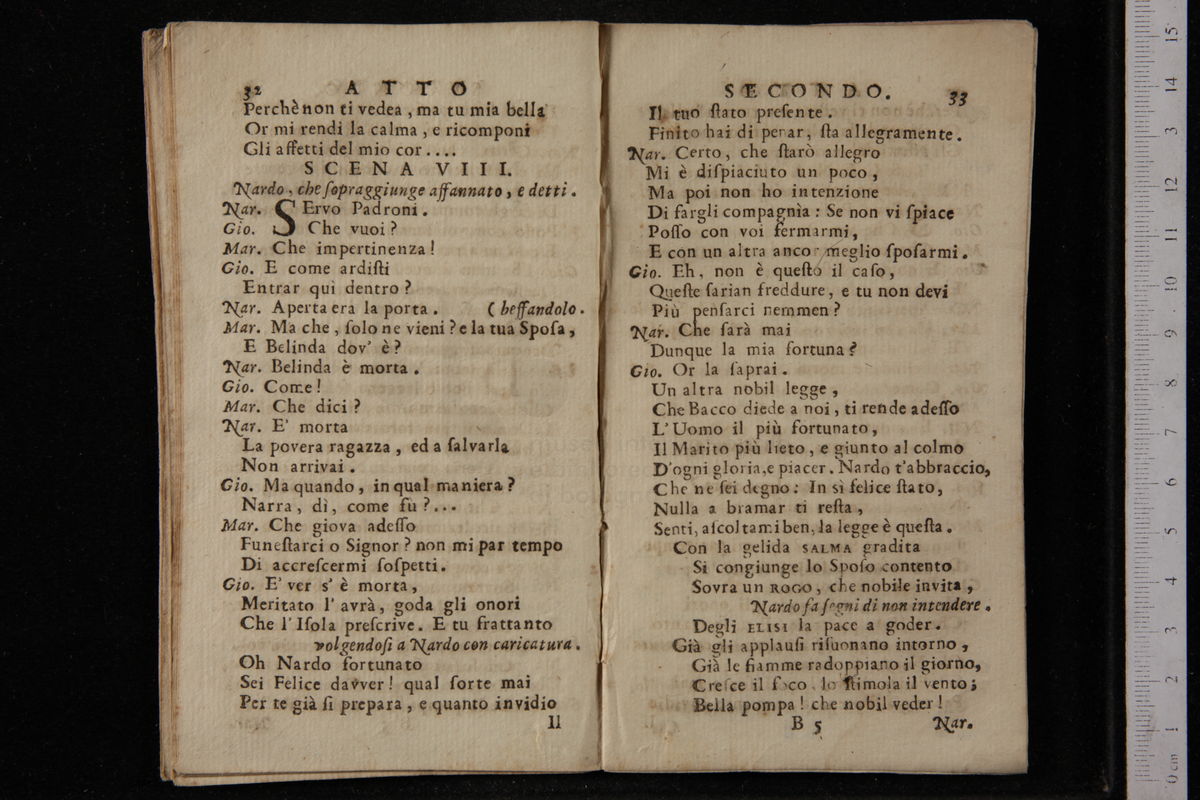 32 ATTO
Perchè non ti vedea, ma tu mia bella
Or mi rendi la calma, e ricomponi
Gli affetti del mio cor....
SCENA VIII.
Nardo, che ſopraggiunge affannato, e detti.
Nar. SErvo Padroni.
Gio. Che vuoi?
Mar. Che impertinenza!
Gio. E come ardiſti
Entrar qui dentro?
Nar. Aperta era la porta. (beffandolo.
Mar. Ma che, ſolo ne vieni? e la tua Spoſa,
E Belinda dov' è?
Nar. Belinda è morta.
Gio. Come!
Mar. Che dici?
Nar. E' morta
La povera ragazza, ed a ſalvarla
Non arrivai.
Gio. Ma quando, in qual maniera?
Narra, dì, come fù?...
Mar. Che giova adeſſo
Funeſtarci o Signor? non mi par tempo
Di accreſcermi ſoſpetti.
Gio. E' ver s' è morta,
Meritato l' avrà, goda gli onori
Che l' Iſola preſcrive. E tu frattanto
volgendoſi a Nardo con caricatura.
Oh Nardo fortunato
Sei Felice davver! qual ſorte mai
Per te già ſi prepara, e quanto invidio
Il
SECONDO. 33
Il tuo ſtato preſente.
Finito hai di penar, ſta allegramente.
Nar. Certo, che ſtarò allegro
Mi è diſpiaciuto un poco,
Ma poi non ho intenzione
Di fargli compagnìa: Se non vi ſpiace
Poſſo con voi fermarmi,
E con un altra ancor meglio ſpoſarmi.
Gio. Eh, non è queſto il caſo,
Queſte ſarian freddure, e tu non devi
Più penſarci nemmen?
Nar. Che ſarà mai
Dunque la mia fortuna?
Gio. Or la ſaprai.
Un altra nobil legge,
Che Bacco diede a noi, ti rende adeſſo
L' Uomo il più fortunato,
Il Marito più lieto, e giunto al colmo
D'ogni gloria, e piacer. Nardo t'abbraccio,
Che ne ſei degno: In sì felice ſtato,
Nulla a bramar ti reſta,
Senti, aſcoltami ben, la legge è queſta.
Con la gelida SALMA gradita
Si congiunge lo Spoſo contento
Sovra un ROGO, che nobile invita,
Nardo fa ſegni di non intendere.
Degli ELISI la pace a goder.
Già gli applauſi riſuonano intorno,
Già le fiamme radoppiano il giorno,
Creſce il foco, lo ſtimola il vento;
Bella pompa! che nobil veder!
B 5 Nar.
0 cm 1 2 3 4 5 6 7 8 9 10 11 12 13 14 15